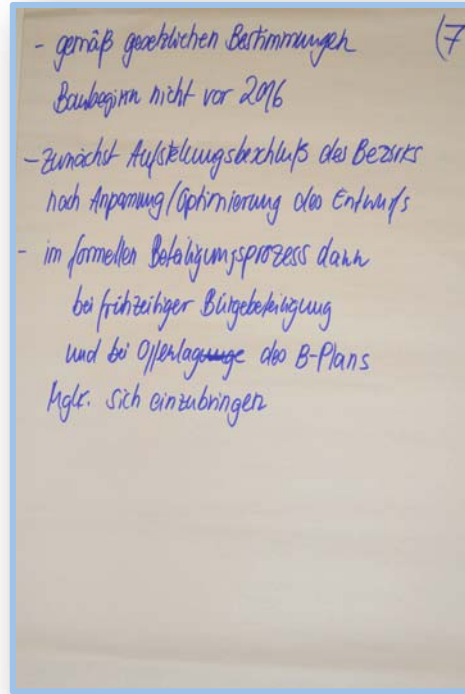 (7
- gemäß gesetzlichen Bestimmungen
Baubeginn nicht vor 2016
- Zunächst Aufstellungsbeschluß des Bezirks
nach Anpassung/Optimierung des Entwurfs
- im formellen Beteiligungsprozess dann
bei frühzeitiger Bürgebeteiligung
und bei Offenlage des B-Plans
Mglk. sich einzubringen